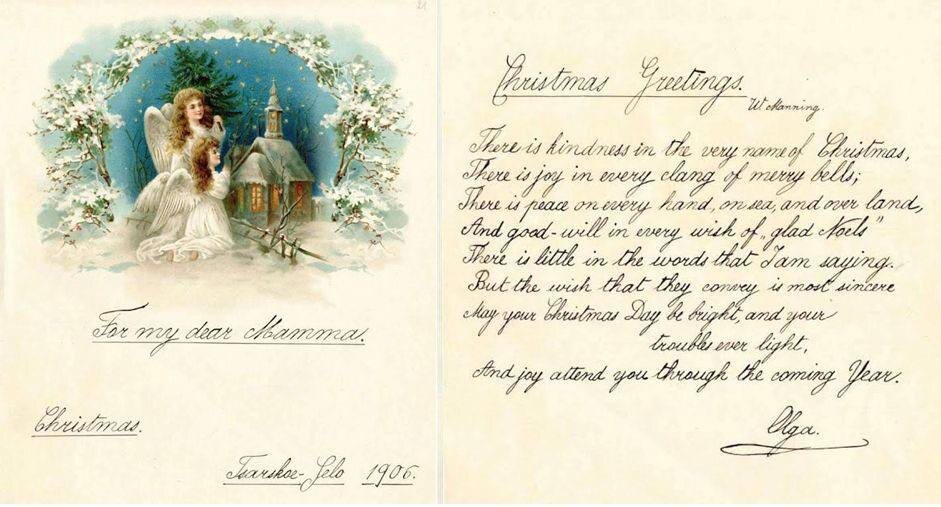 21
For my dear Mamma.
Christmas.
Tsarskoe-Selo 1906.
Christmas Greetings.
W. Manning.
There is kindness in the very name of Christmas,
There is joy in every clang of merry bells;
There is peace on every hand, on sea, and over land,
And good-will in every wish of „glad Noels"
There is little in the words that I am saying.
But the wish that they convey is most sincere
May your Christmas Day be bright, and your
troubles ever light,
And joy attend you through the coming Year.
Olga.